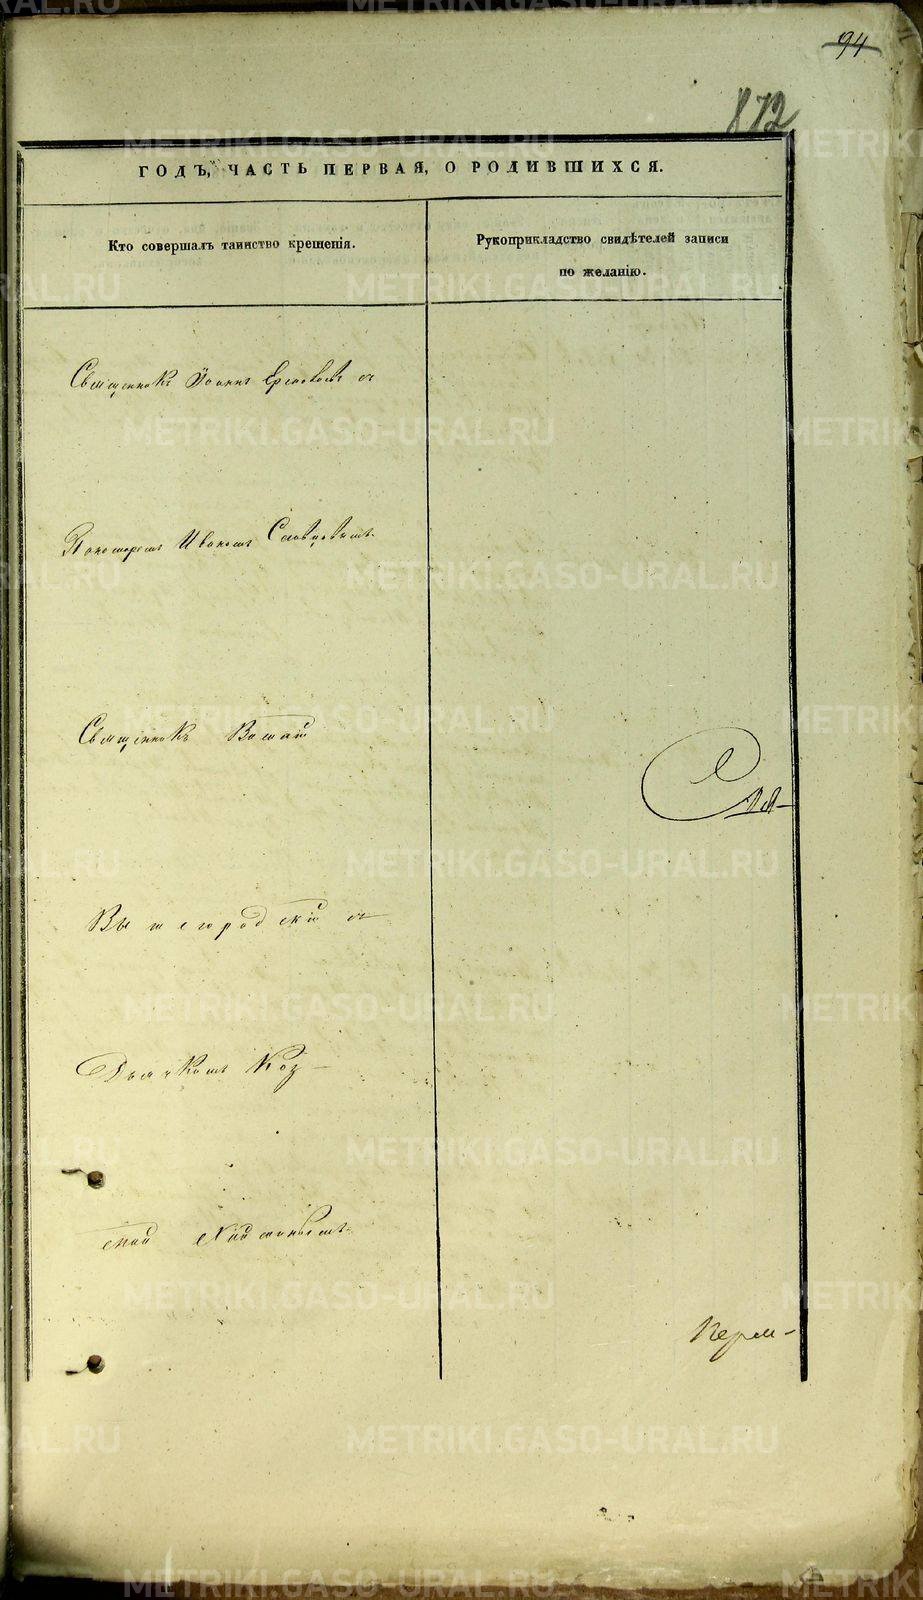 94
872
ГОДЪ, ЧАСТЬ ПЕРВАЯ, О РОДИВШИХСЯ.
Кто совершалъ таинство крещенія.
Рукоприкладство свидѣтелей записи
по желанію.
Священникъ Іоаннъ съ
Пономаремъ Иваномъ Словцовымъ.
Священникъ
Вышегородскій съ
Дьячкомъ Коз-
Перм-
METRIKI.GASO-URAL.RU